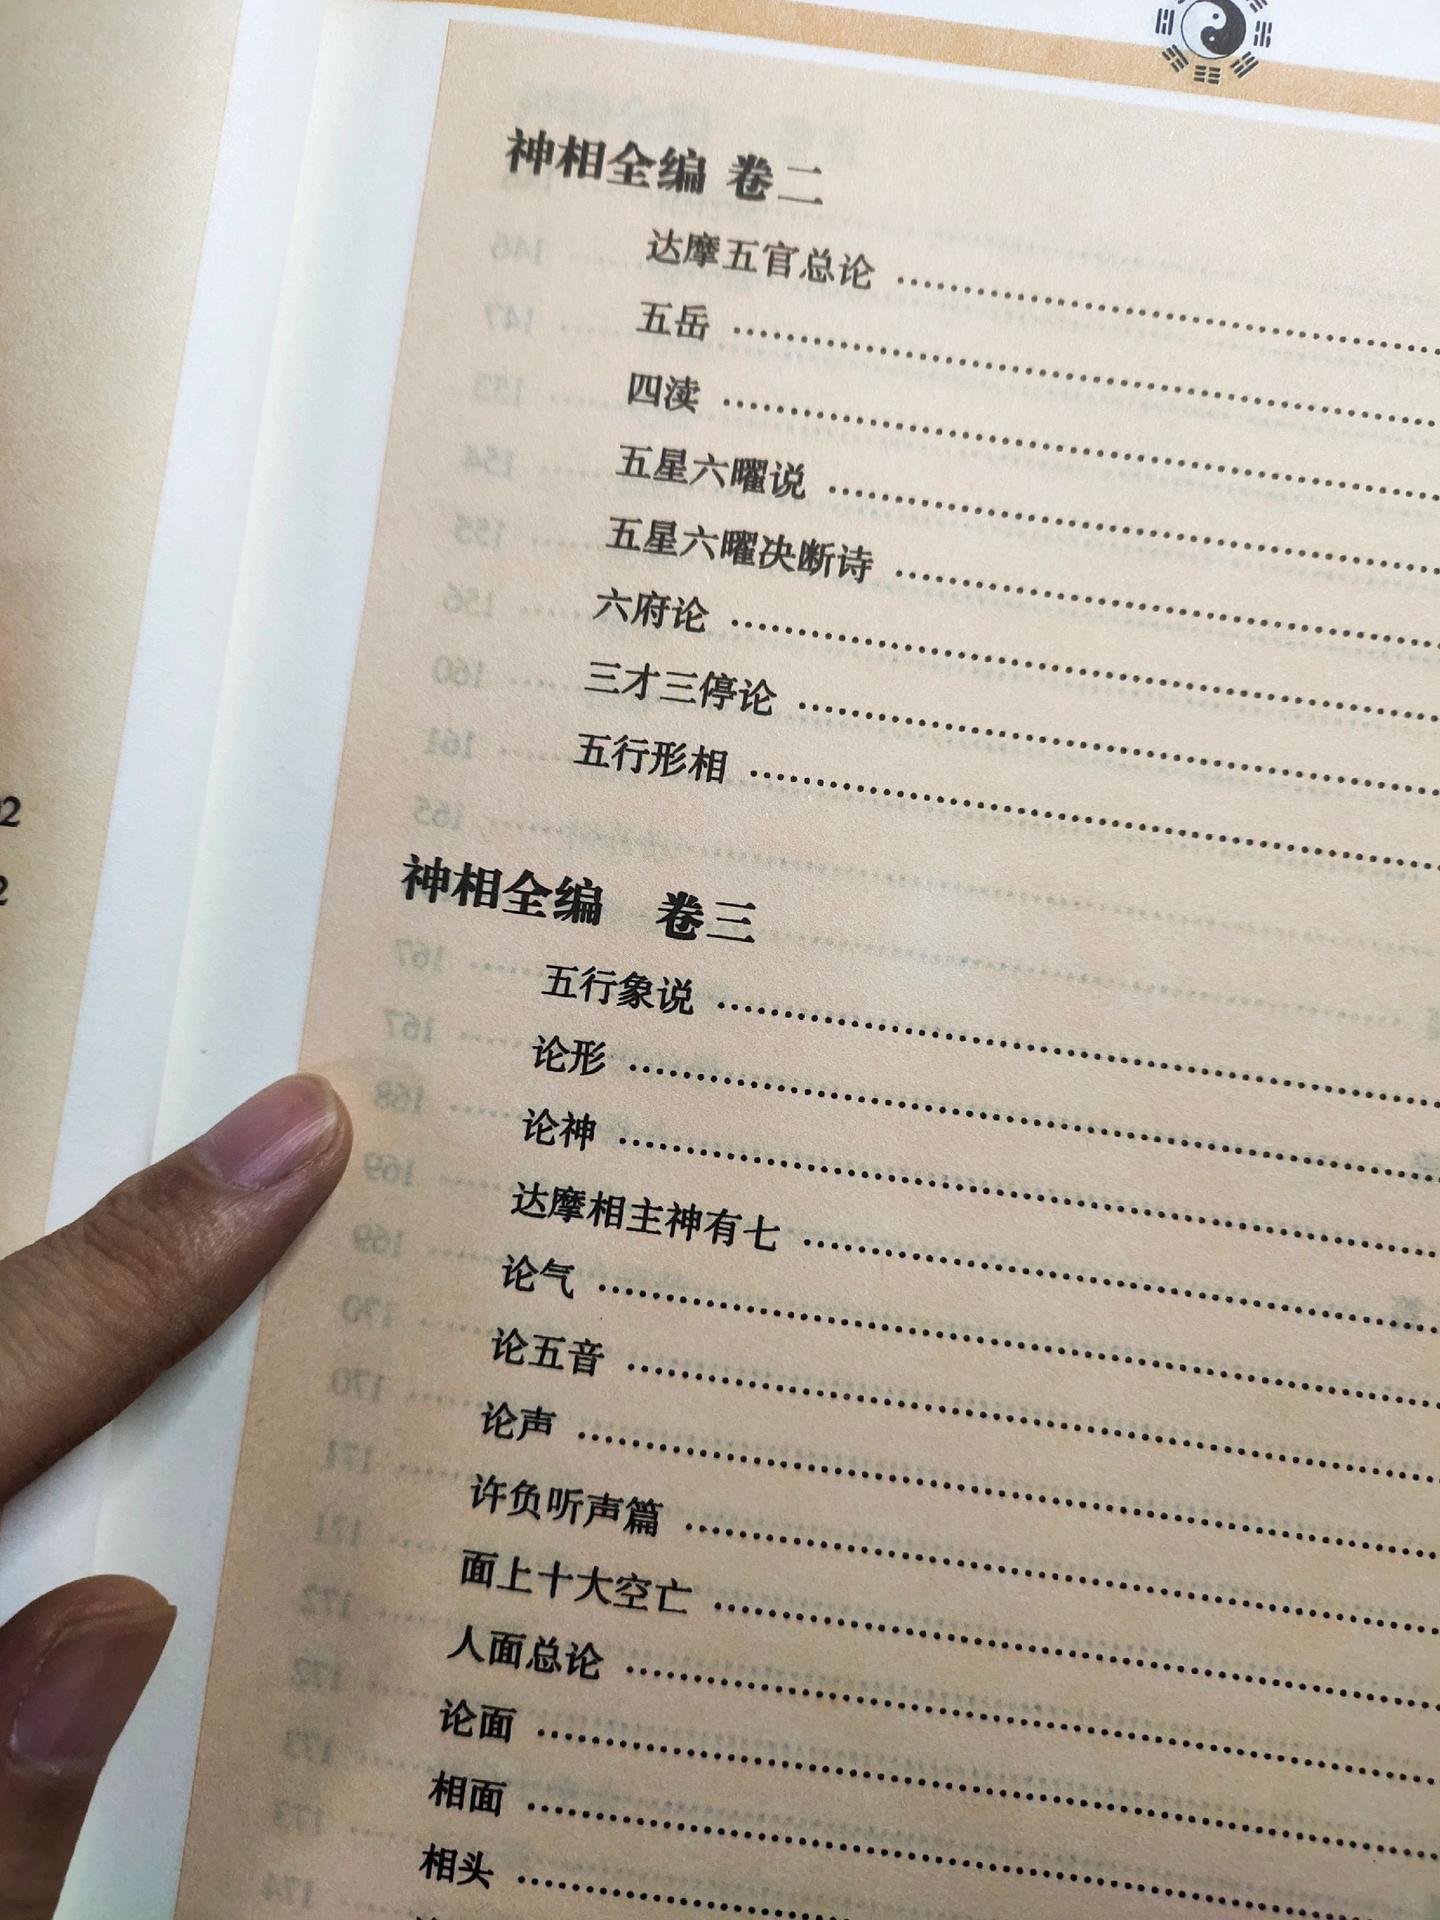 神相全编 卷二
达摩五官总论
五岳
四渎
五星六曜说
五星六曜决断诗
六府论
三才三停论
五行形相
神相全编 卷三
五行象说
论形
论神
达摩相主神有七
论气
论五音
论声
许负听声篇
面上十大空亡
人面总论
论面
相面
相头